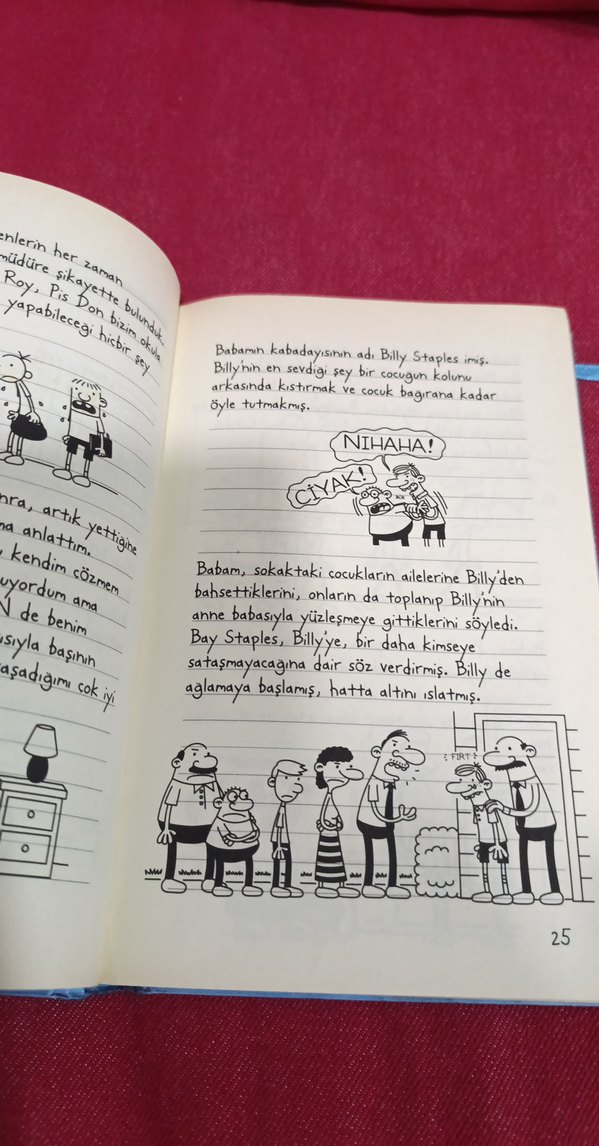 enlerin her zaman
müdüre şikayette bulunduk.
Roy, Pis Don bizim okula
yapabileceği hiçbir şey
nra, artık yettiğine
ma anlattım.
kendim çözmem
uyordum ama
N de benim
ısıyla başının
aşadığımı cok iyi
Babamın kabadayısının adı Billy Staples imiş.
Billy'nin en sevdigi şey bir cocuğun kolunu
arkasında kıstırmak ve cocuk bagırana kadar
öyle tutmakmış.
NIHAHA!
CİYAK!
Babam, sokaktaki cocukların ailelerine Billy'den
bahsettiklerini, onların da toplanıp Billy'nin
anne babasıyla yüzleşmeye gittiklerini söyledi.
Bay Staples, Billy'ye, bir daha kimseye
sataşmayacağına dair söz verdirmiş. Billy de
ağlamaya başlamış, hatta altını ıslatmış.
FIRT
25